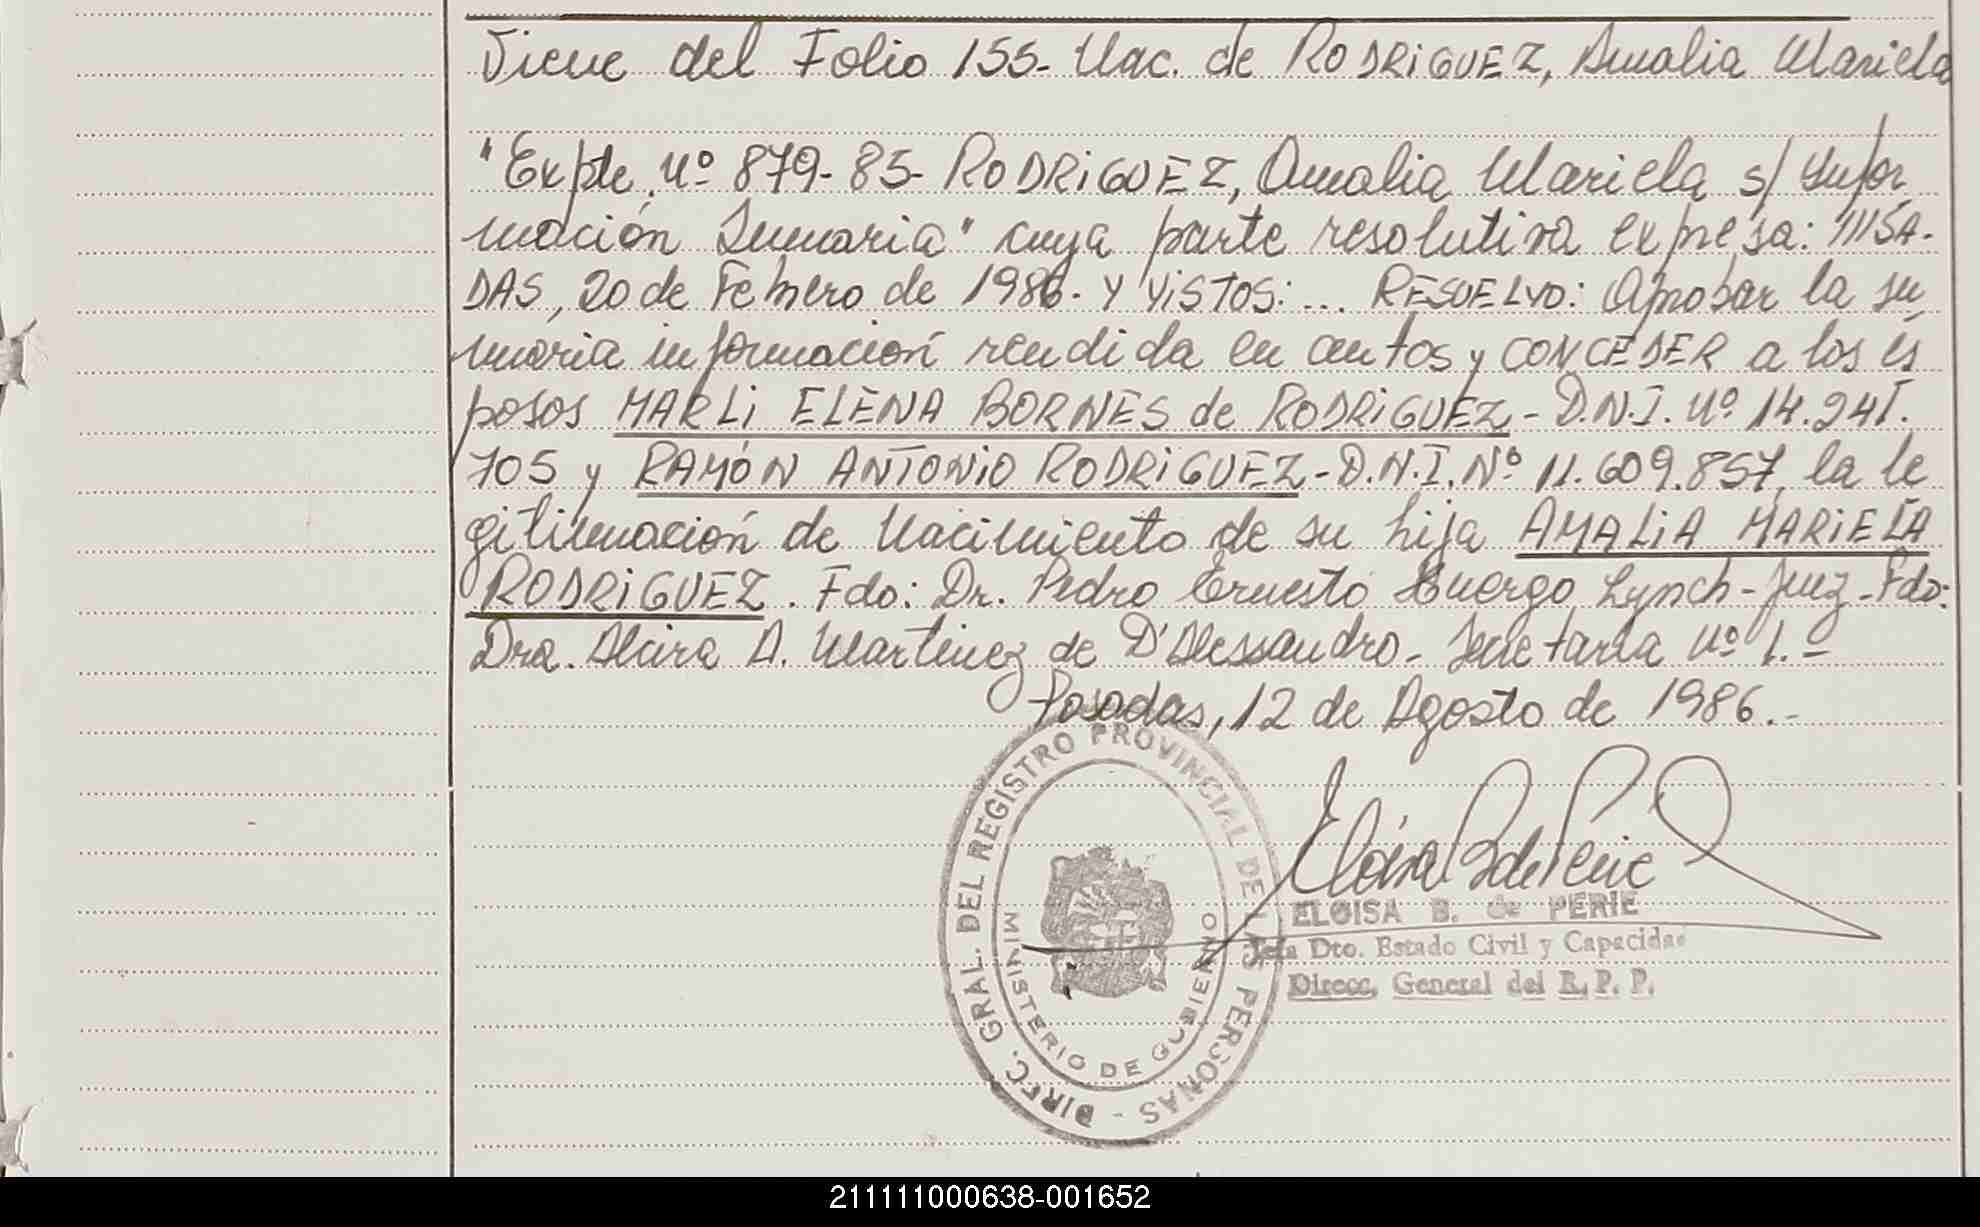 Viene del Folio 155- Nac. de RODRIGUEZ, Amalia Mariela
"Expte. Nº 879-85- RODRIGUEZ, Amalia Mariela s/ Infor
mación Sumaria" cuya parte resolutiva expresa:
DAS, 20 de Febrero de 1986. Y VISTOS:... RESUELVO: Aprobar la su
maria información rendida en autos y CONCEDER a los es
posos MARLI ELENA BORNES de RODRIGUEZ - D.N.I. Nº 14.241.
705 y RAMÓN ANTONIO RODRIGUEZ - D.N.I. Nº 11.609.857, la le
gitimación de Nacimiento de su hija AMALIA MARIELA
RODRIGUEZ. Fdo: Dr. Pedro Ernesto Huergo Lynch - Juez - Fdo:
Dra. Alcira A. Martinez de D'Alessandro - Secretaria Nº 1.-
Posadas, 12 de Agosto de 1986.-
DIREC. GRAL. DEL REGISTRO PROVINCIAL DE LAS PERSONAS -
MINISTERIO DE GOBIERNO
Eloisa B de Perie
ELOISA B. de PERIE
Jefa Dto. Estado Civil y Capacidad
Direcc. General del R. P. P.
211111000638-001652